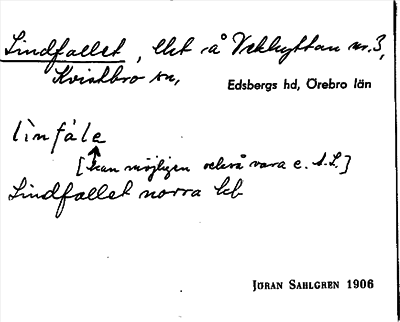 Lindfallet, lht å Vekhyttan nr. 3,
Kvistbro sn,
Edsbergs hd, Örebro län
lìnfàle
[kan möjligen också vara e. S.L.]
Lindfallet norra kb
JÖRAN SAHLGREN 1906